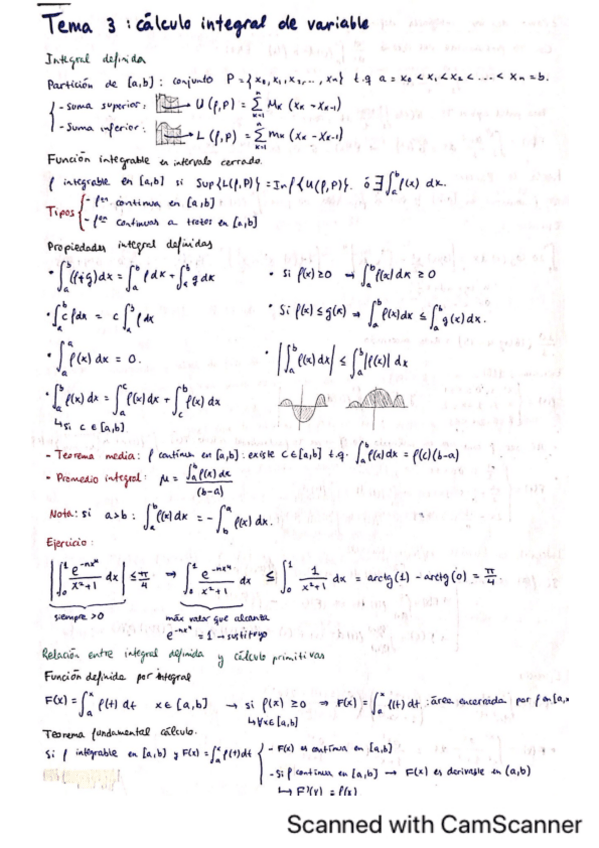 Tema 3 : cálculo integral de variable
Integral definida
Partición de [a,b] : conjunto P = {x₀, x₁, x₂, ..., xₙ} t.q a = x₀ < x₁ < x₂ < ... < xₙ = b.
- Suma superior: → U(f,P) = Σₖ₌₁ⁿ Mₖ (xₖ - xₖ₋₁)
- Suma inferior: → L(f,P) = Σₖ₌₁ⁿ mₖ (xₖ - xₖ₋₁)
Función integrable en intervalo cerrado.
f integrable en [a,b] si Sup{L(f,P)} = Inf{U(f,P)}. ó ∃ ∫ₐᵇ f(x) dx.
Tipos
- fᵒⁿ continua en [a,b]
- fᵒⁿ continuas a trozos en [a,b]
Propiedades integral definidas
• ∫ₐᵇ (f+g)dx = ∫ₐᵇ f dx + ∫ₐᵇ g dx • Si f(x) ≥ 0 → ∫ₐᵇ f(x) dx ≥ 0
• ∫ₐᵇ c f dx = c ∫ₐᵇ f dx • Si f(x) ≤ g(x) → ∫ₐᵇ f(x)dx ≤ ∫ₐᵇ g(x) dx.
• ∫ₐᵃ f(x) dx = 0. • |∫ₐᵇ f(x)dx| ≤ ∫ₐᵇ |f(x)| dx
• ∫ₐᵇ f(x) dx = ∫ₐᶜ f(x) dx + ∫꜀ᵇ f(x) dx
↳ si c ∈ [a,b].
- Teorema media: f continua en [a,b] : existe c ∈ [a,b] t.q. ∫ₐᵇ f(x) dx = f(c)(b-a)
- Promedio integral: μ = ∫ₐᵇ f(x) dx / (b-a)
Nota: si a>b : ∫ₐᵇ f(x) dx = - ∫_b^a f(x) dx.
Ejercicio:
|∫₀¹ e^(-nx^n) / (x²+1) dx| ≤ π/4 ⇒ ∫₀¹ e^(-nx^n) / (x²+1) dx ≤ ∫₀¹ 1/(x²+1) dx = arctg(1) - arctg(0) = π/4.
siempre >0 máx valor que alcanza
e^(-nx^n) = 1 → sustituyo
Relación entre integral definida y cálculo primitivas
Función definida por integral
F(x) = ∫ₐˣ f(t) dt x ∈ [a,b] → si f(x) ≥ 0 ⇒ F(x) = ∫ₐˣ f(t) dt : área encerrada por f en [a,x
↳ ∀x ∈ [a,b]
Teorema fundamental cálculo.
Si f integrable en [a,b] y F(x) = ∫ₐˣ f(t) dt
- F(x) es continua en [a,b]
- Si f continua en [a,b] → F(x) es derivable en (a,b)
↳ F'(x) = f(x)
Scanned with CamScanner